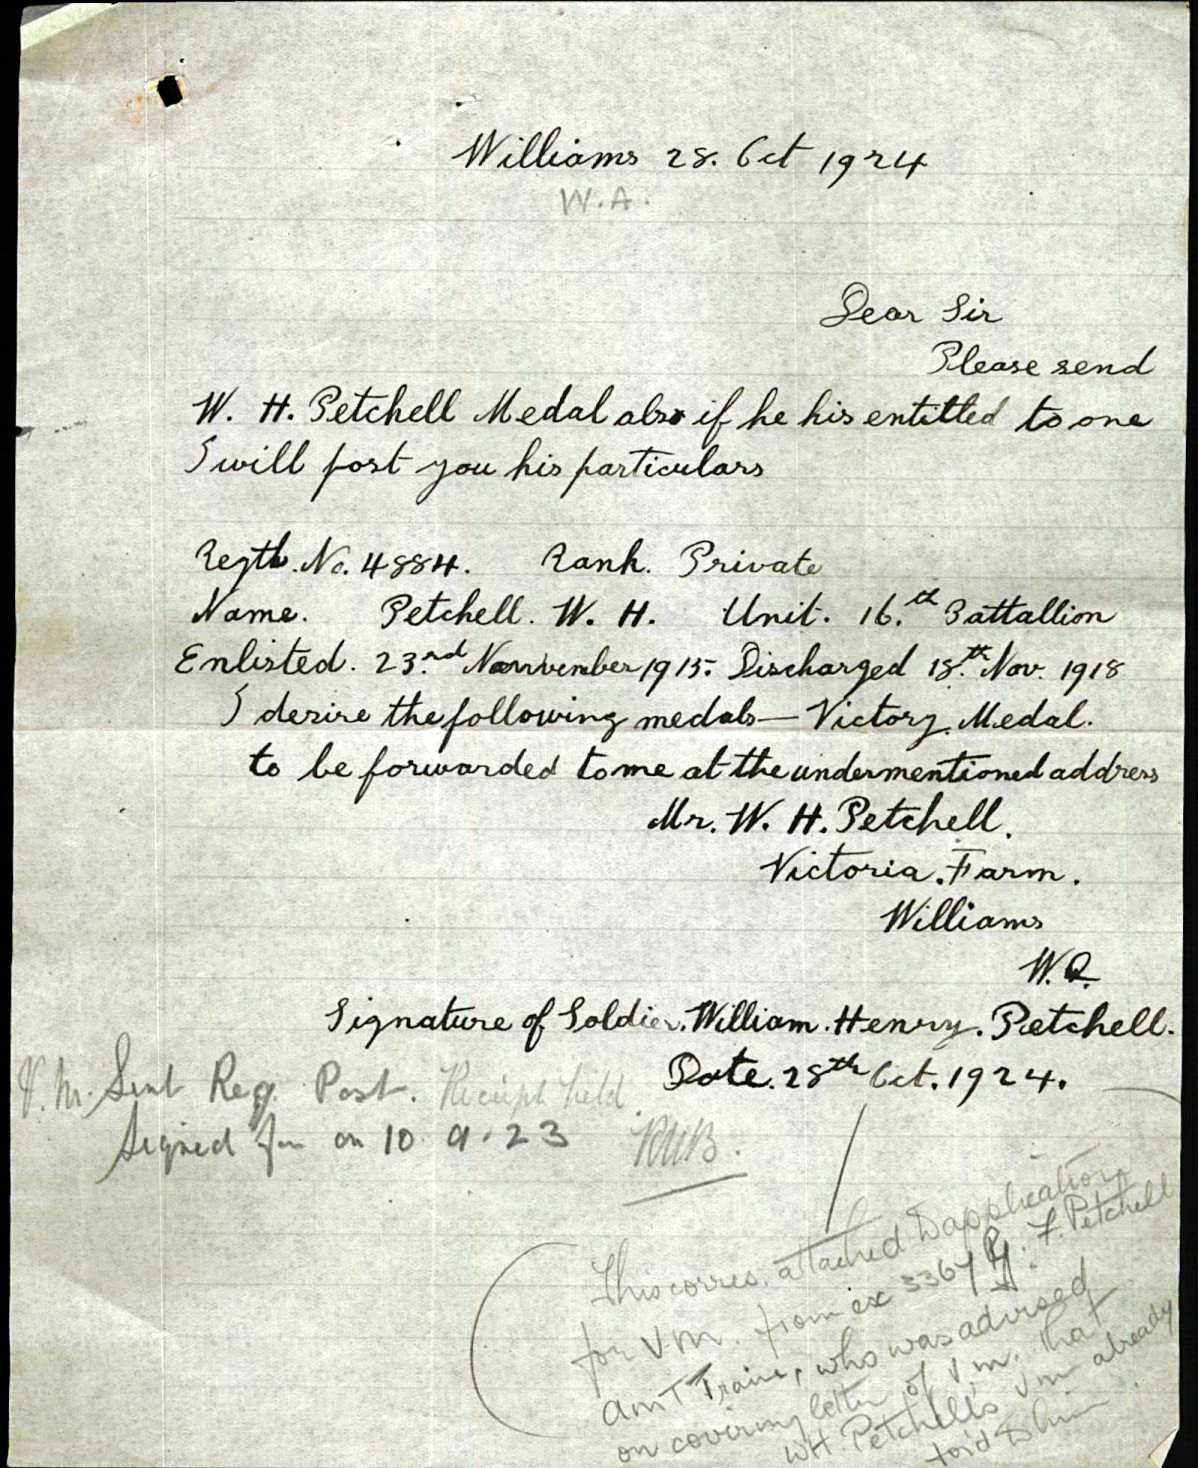 Williams 28. Oct 1924
W.A.
Dear Sir
Please send
W. H. Petchell Medal also if he his entitled to one
I will post you his particulars
Regtl. No. 4884. Rank. Private
Name. Petchell. W. H. Unit. 16.th Battallion
Enlisted. 23.rd November 1915. Discharged 18.th Nov. 1918
I desire the following medals — Victory Medal.
to be forwarded to me at the undermentioned address
Mr. W. H. Petchell.
Victoria. Farm.
Williams
W.A.
Signature of Soldier. William. Henry. Petchell.
Date. 28th Oct. 1924.
V.M. Sent Reg. Post. Receipt held.
Signed for on 10.9.23
This corres. attached to application
for V.M. from ex 3367 F. Petchell
Train, who was advised
on covering letter of V.M. that
WH. Petchell's V.M. already
to him